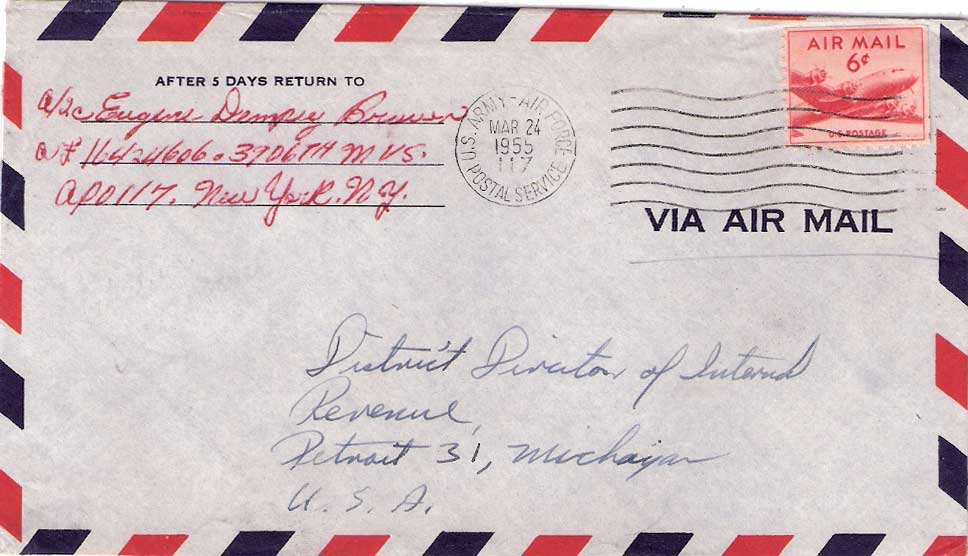 AFTER 5 DAYS RETURN TO
A/2c Eugene Dempsy
AF 16424606 . 3906TH MVS.
APO 117. New York. N.Y.
U.S. ARMY-AIR FORCE
MAR 24
1955
117
POSTAL SERVICE
AIR MAIL
6¢
U.S. POSTAGE
VIA AIR MAIL
District Director of Internal
Revenue,
Detroit 31, Michigan
U. S. A.